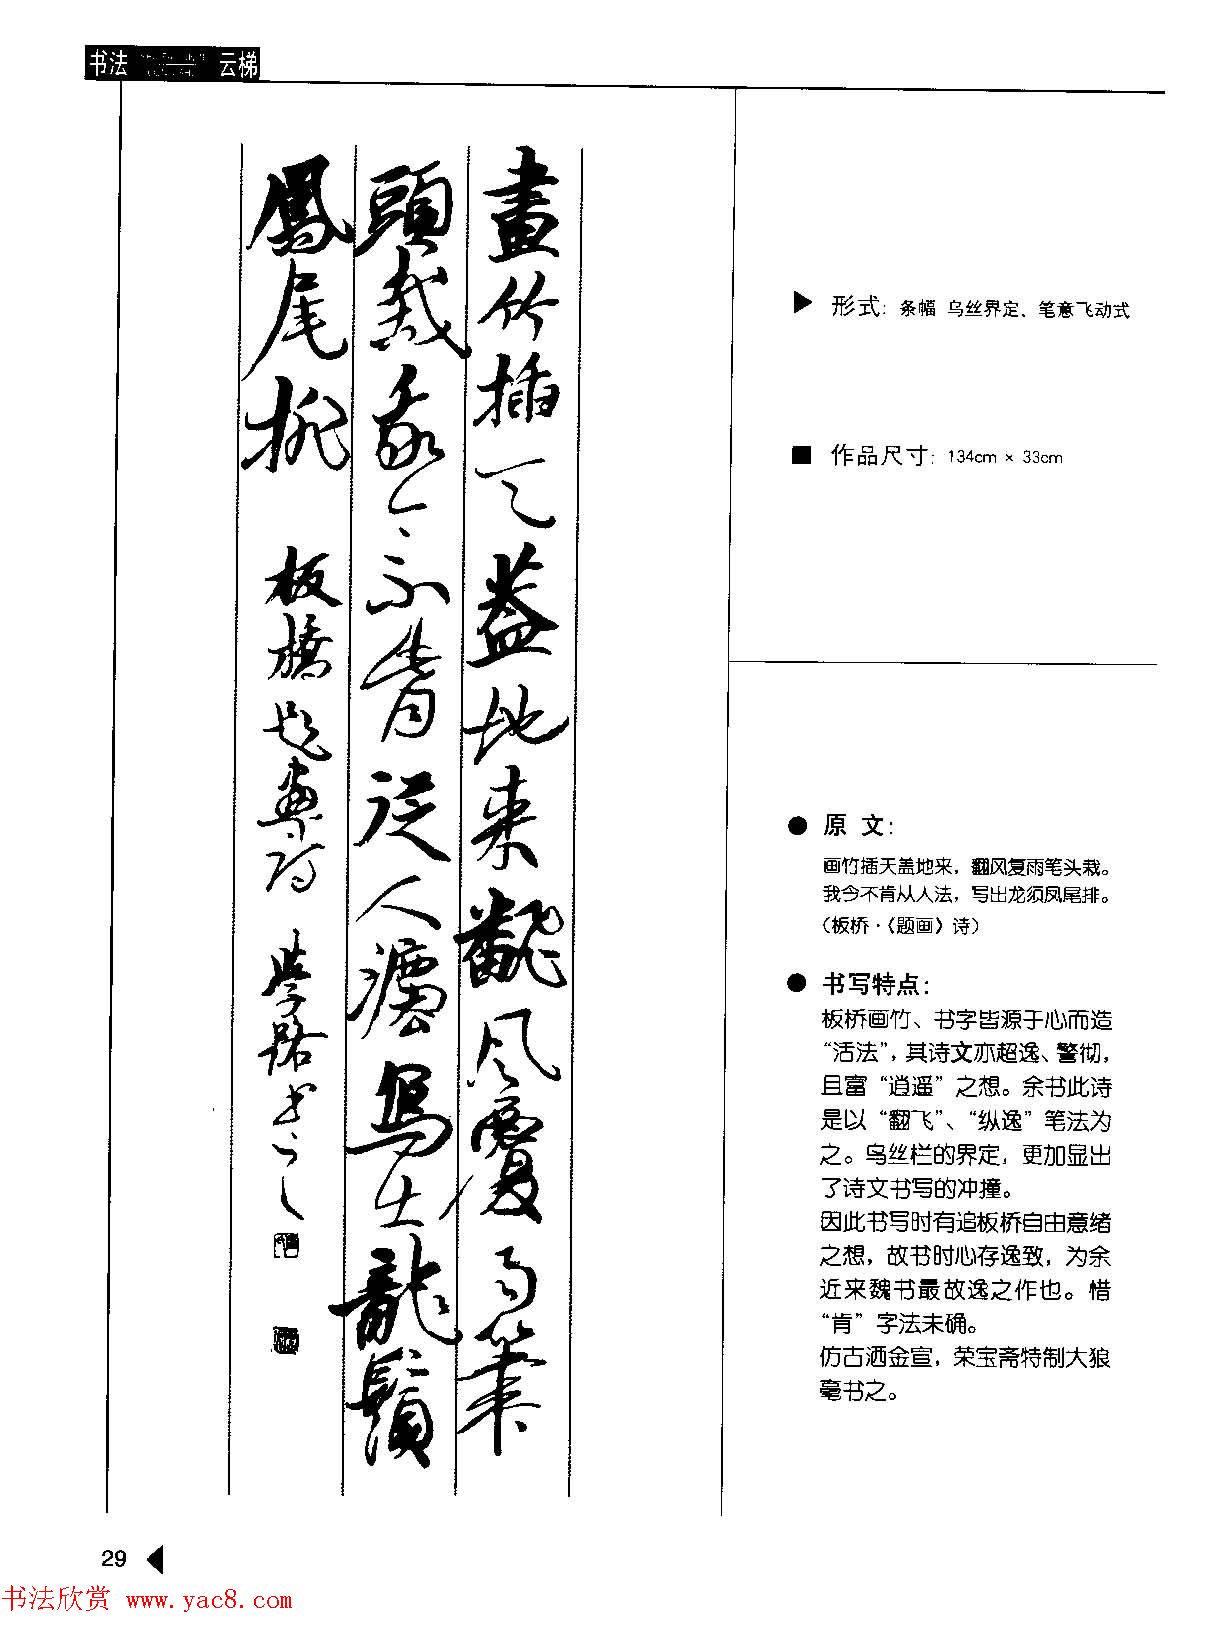 书法 云梯
畫竹插天蓋地来翻风覆雨筆
頭栽我今不肯從人濃寫出龍鬚
鳳尾排 板橋題畫诗 學路书之
▶ 形式: 条幅 乌丝界定、笔意飞动式
■ 作品尺寸: 134cm × 33cm
● 原 文:
画竹插天盖地来，翻风复雨笔头栽。
我今不肯从人法，写出龙须凤尾排。
（板桥·〈题画〉诗）
● 书写特点:
板桥画竹、书字皆源于心而造
“活法”，其诗文亦超逸、警彻，
且富“逍遥”之想。余书此诗
是以“翻飞”、“纵逸”笔法为
之。乌丝栏的界定，更加显出
了诗文书写的冲撞。
因此书写时有追板桥自由意绪
之想，故书时心存逸致，为余
近来魏书最放逸之作也。惜
“肯”字法未确。
仿古洒金宣，荣宝斋特制大狼
毫书之。
29
书法欣赏 www.yac8.com